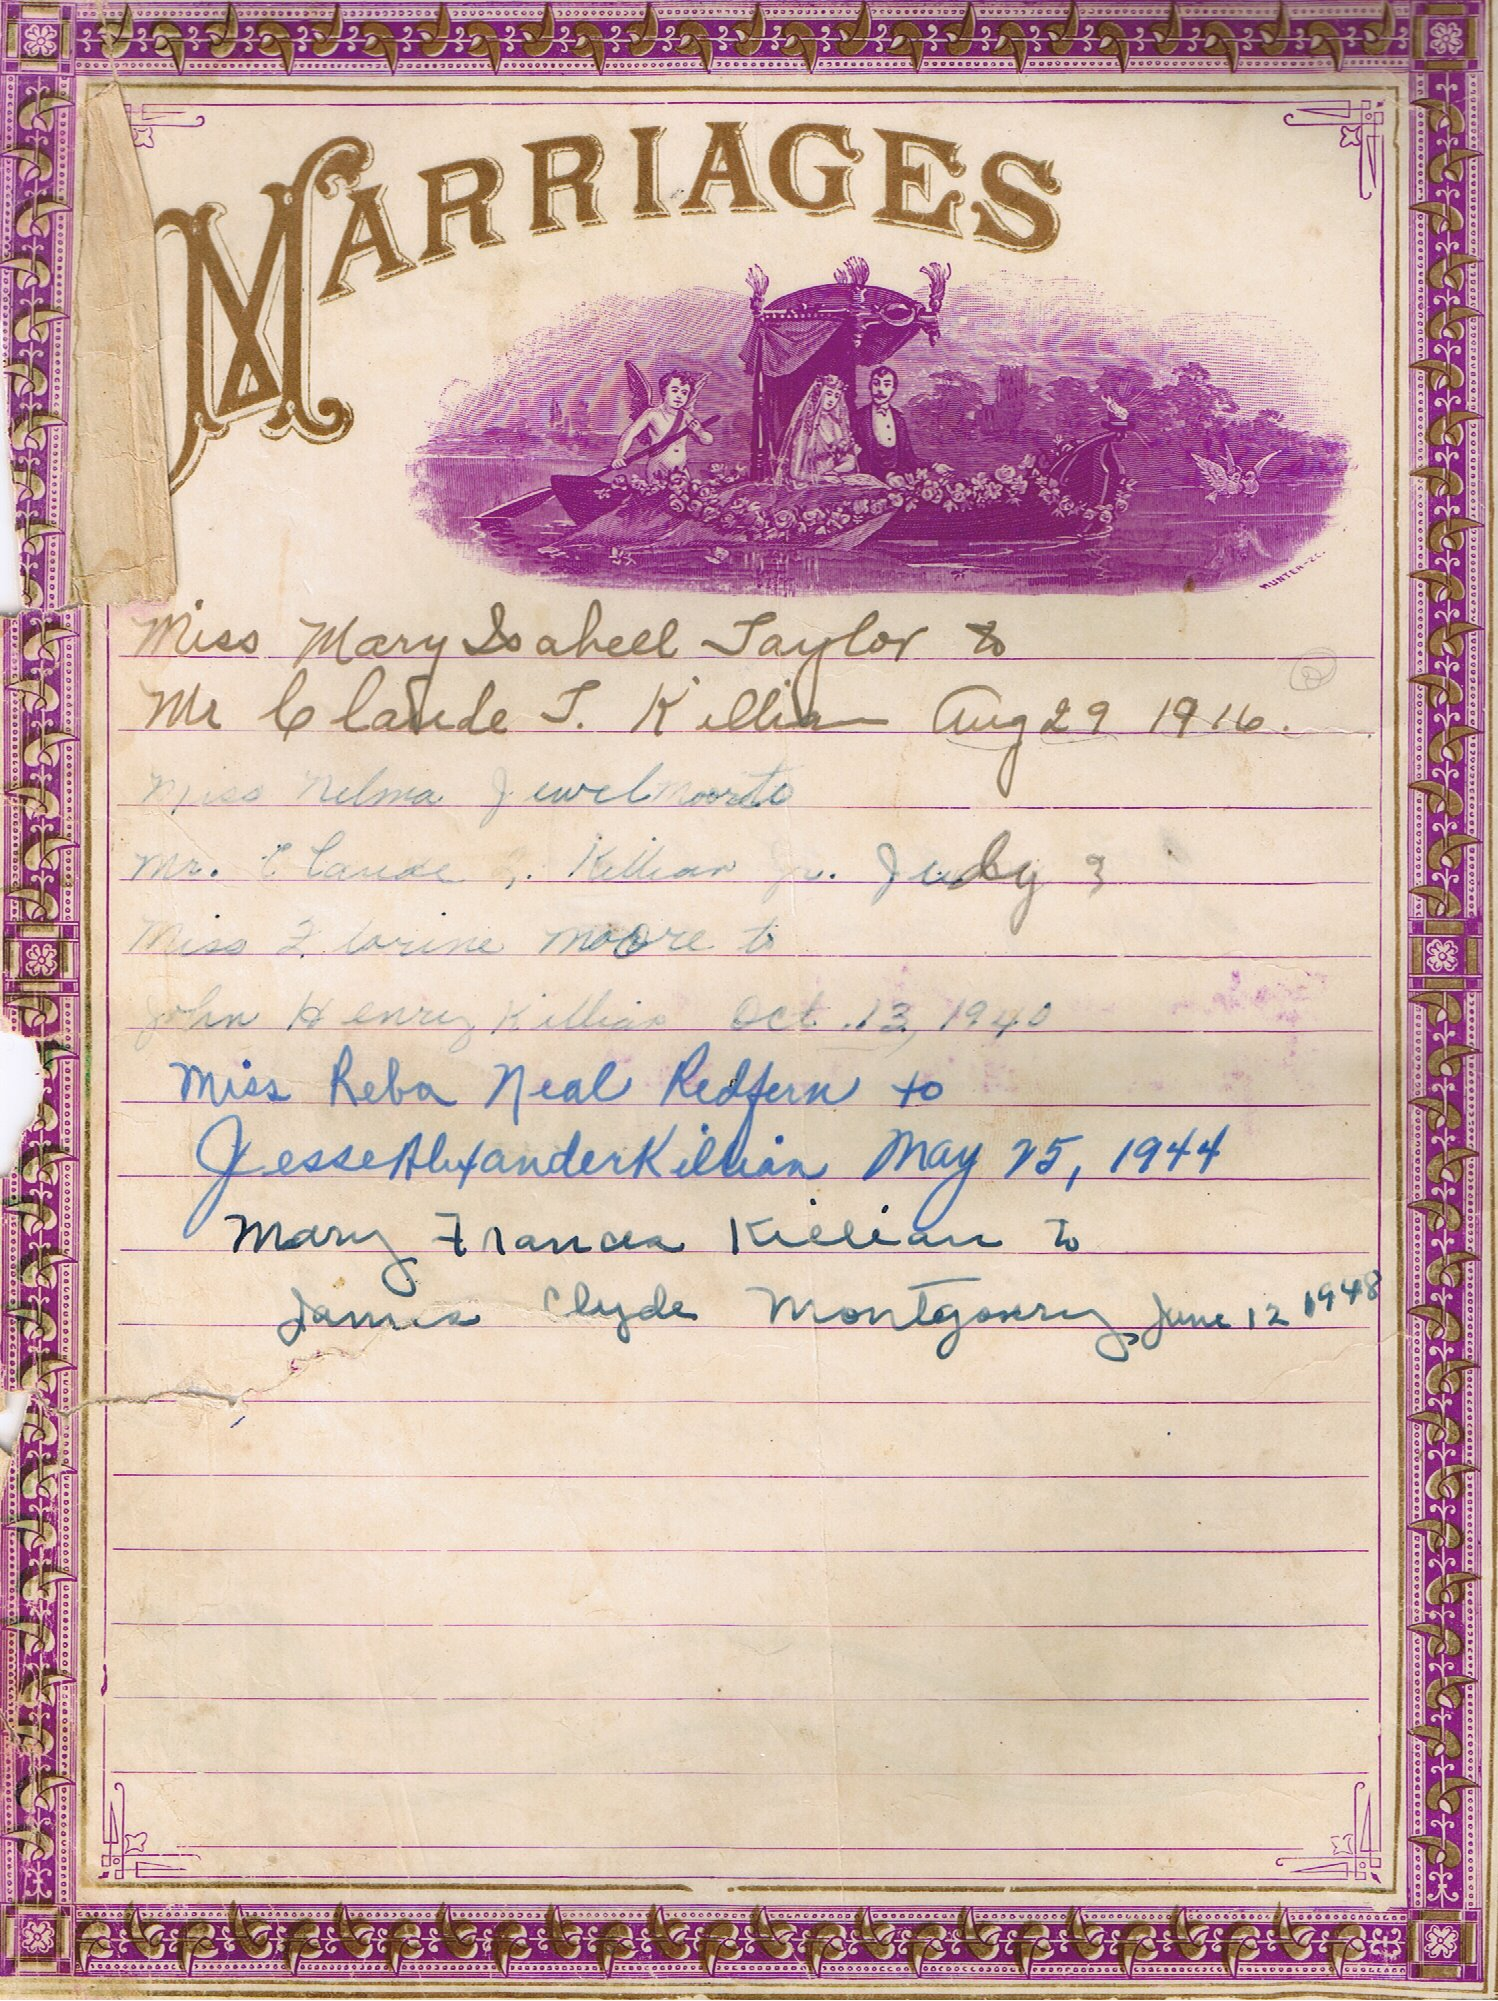 MARRIAGES
HUNTER-SC.
Miss Mary Isabell Taylor to
Mr Claude T. Killian Aug 29 1916.
Miss Nelma Jewel Moore to
Mr. Claude T. Killian Jr. July 3
Miss Florine Moore to
John Henry Killian Oct. 13, 1940
Miss Reba Neal Redfern to
Jesse Alexander Killian May 25, 1944
Mary Frances Killian to
James Clyde Montgomry, June 12 1948